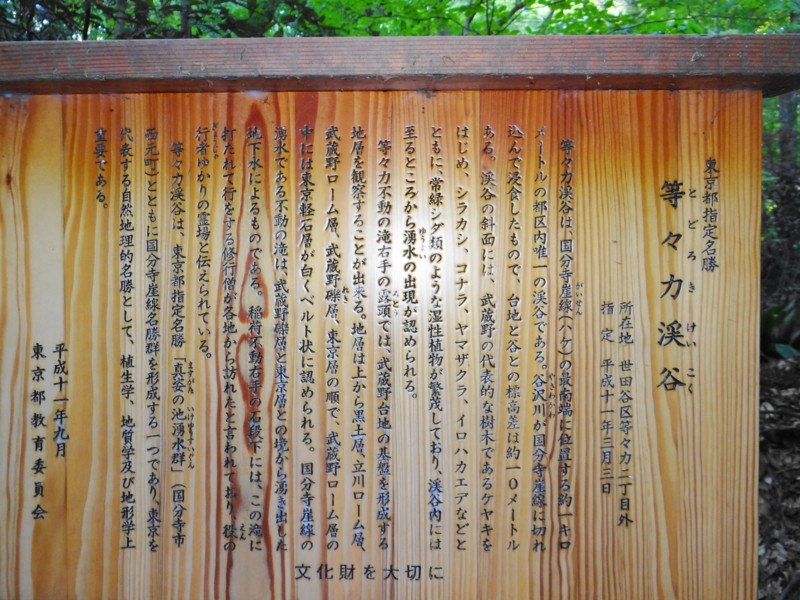 東京都指定名勝
等々力渓谷
とどろきけいこく
所在地 世田谷区等々力二丁目外
指定 平成十一年三月三日
等々力渓谷は、国分寺崖線(ハケ)の最南端に位置する約一キロ
がいせん
メートルの都区内唯一の渓谷である。谷沢川が国分寺崖線に切れ
やざわがわ
込んで浸食したもので、台地と谷との標高差は約一〇メートル
ある。渓谷の斜面には、武蔵野の代表的な樹木であるケヤキを
はじめ、シラカシ、コナラ、ヤマザクラ、イロハカエデなどと
ともに、常緑シダ類のような湿性植物が繁茂しており、渓谷内には
至るところから湧水の出現が認められる。
ゆうすい
等々力不動の滝右手の露頭では、武蔵野台地の基盤を形成する
ろとう
地層を観察することが出来る。地層は上から黒土層、立川ローム層、
武蔵野ローム層、武蔵野礫層、東京層の順で、武蔵野ローム層の
れき
中には東京軽石層が白くベルト状に認められる。国分寺崖線の
湧水である不動の滝は、武蔵野礫層と東京層との境から湧き出した
地下水によるものである。稲荷不動右手の石段下には、この滝に
打たれて行をする修行僧が各地から訪れたと言われており、役の
えんの
行者ゆかりの霊場と伝えられている。
ぎょうじゃ
等々力渓谷は、東京都指定名勝「真姿の池湧水群」(国分寺市
ますがたのいけゆうすいぐん
西元町)とともに国分寺崖線名勝群を形成する一つであり、東京を
代表する自然地理的名勝として、植生学、地質学及び地形学上
重要である。
平成十一年九月
東京都教育委員会
文化財を大切に